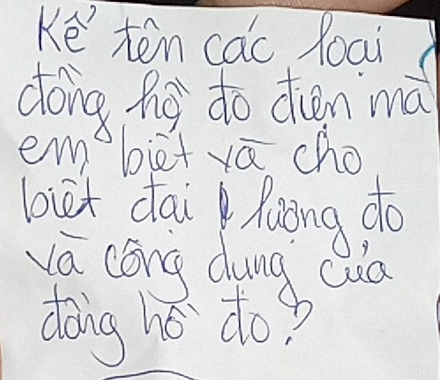 Kể tên các loại
đồng hồ đo điện mà
em biết và cho
biết đại lượng đo
và công dụng của
đồng hồ đo?